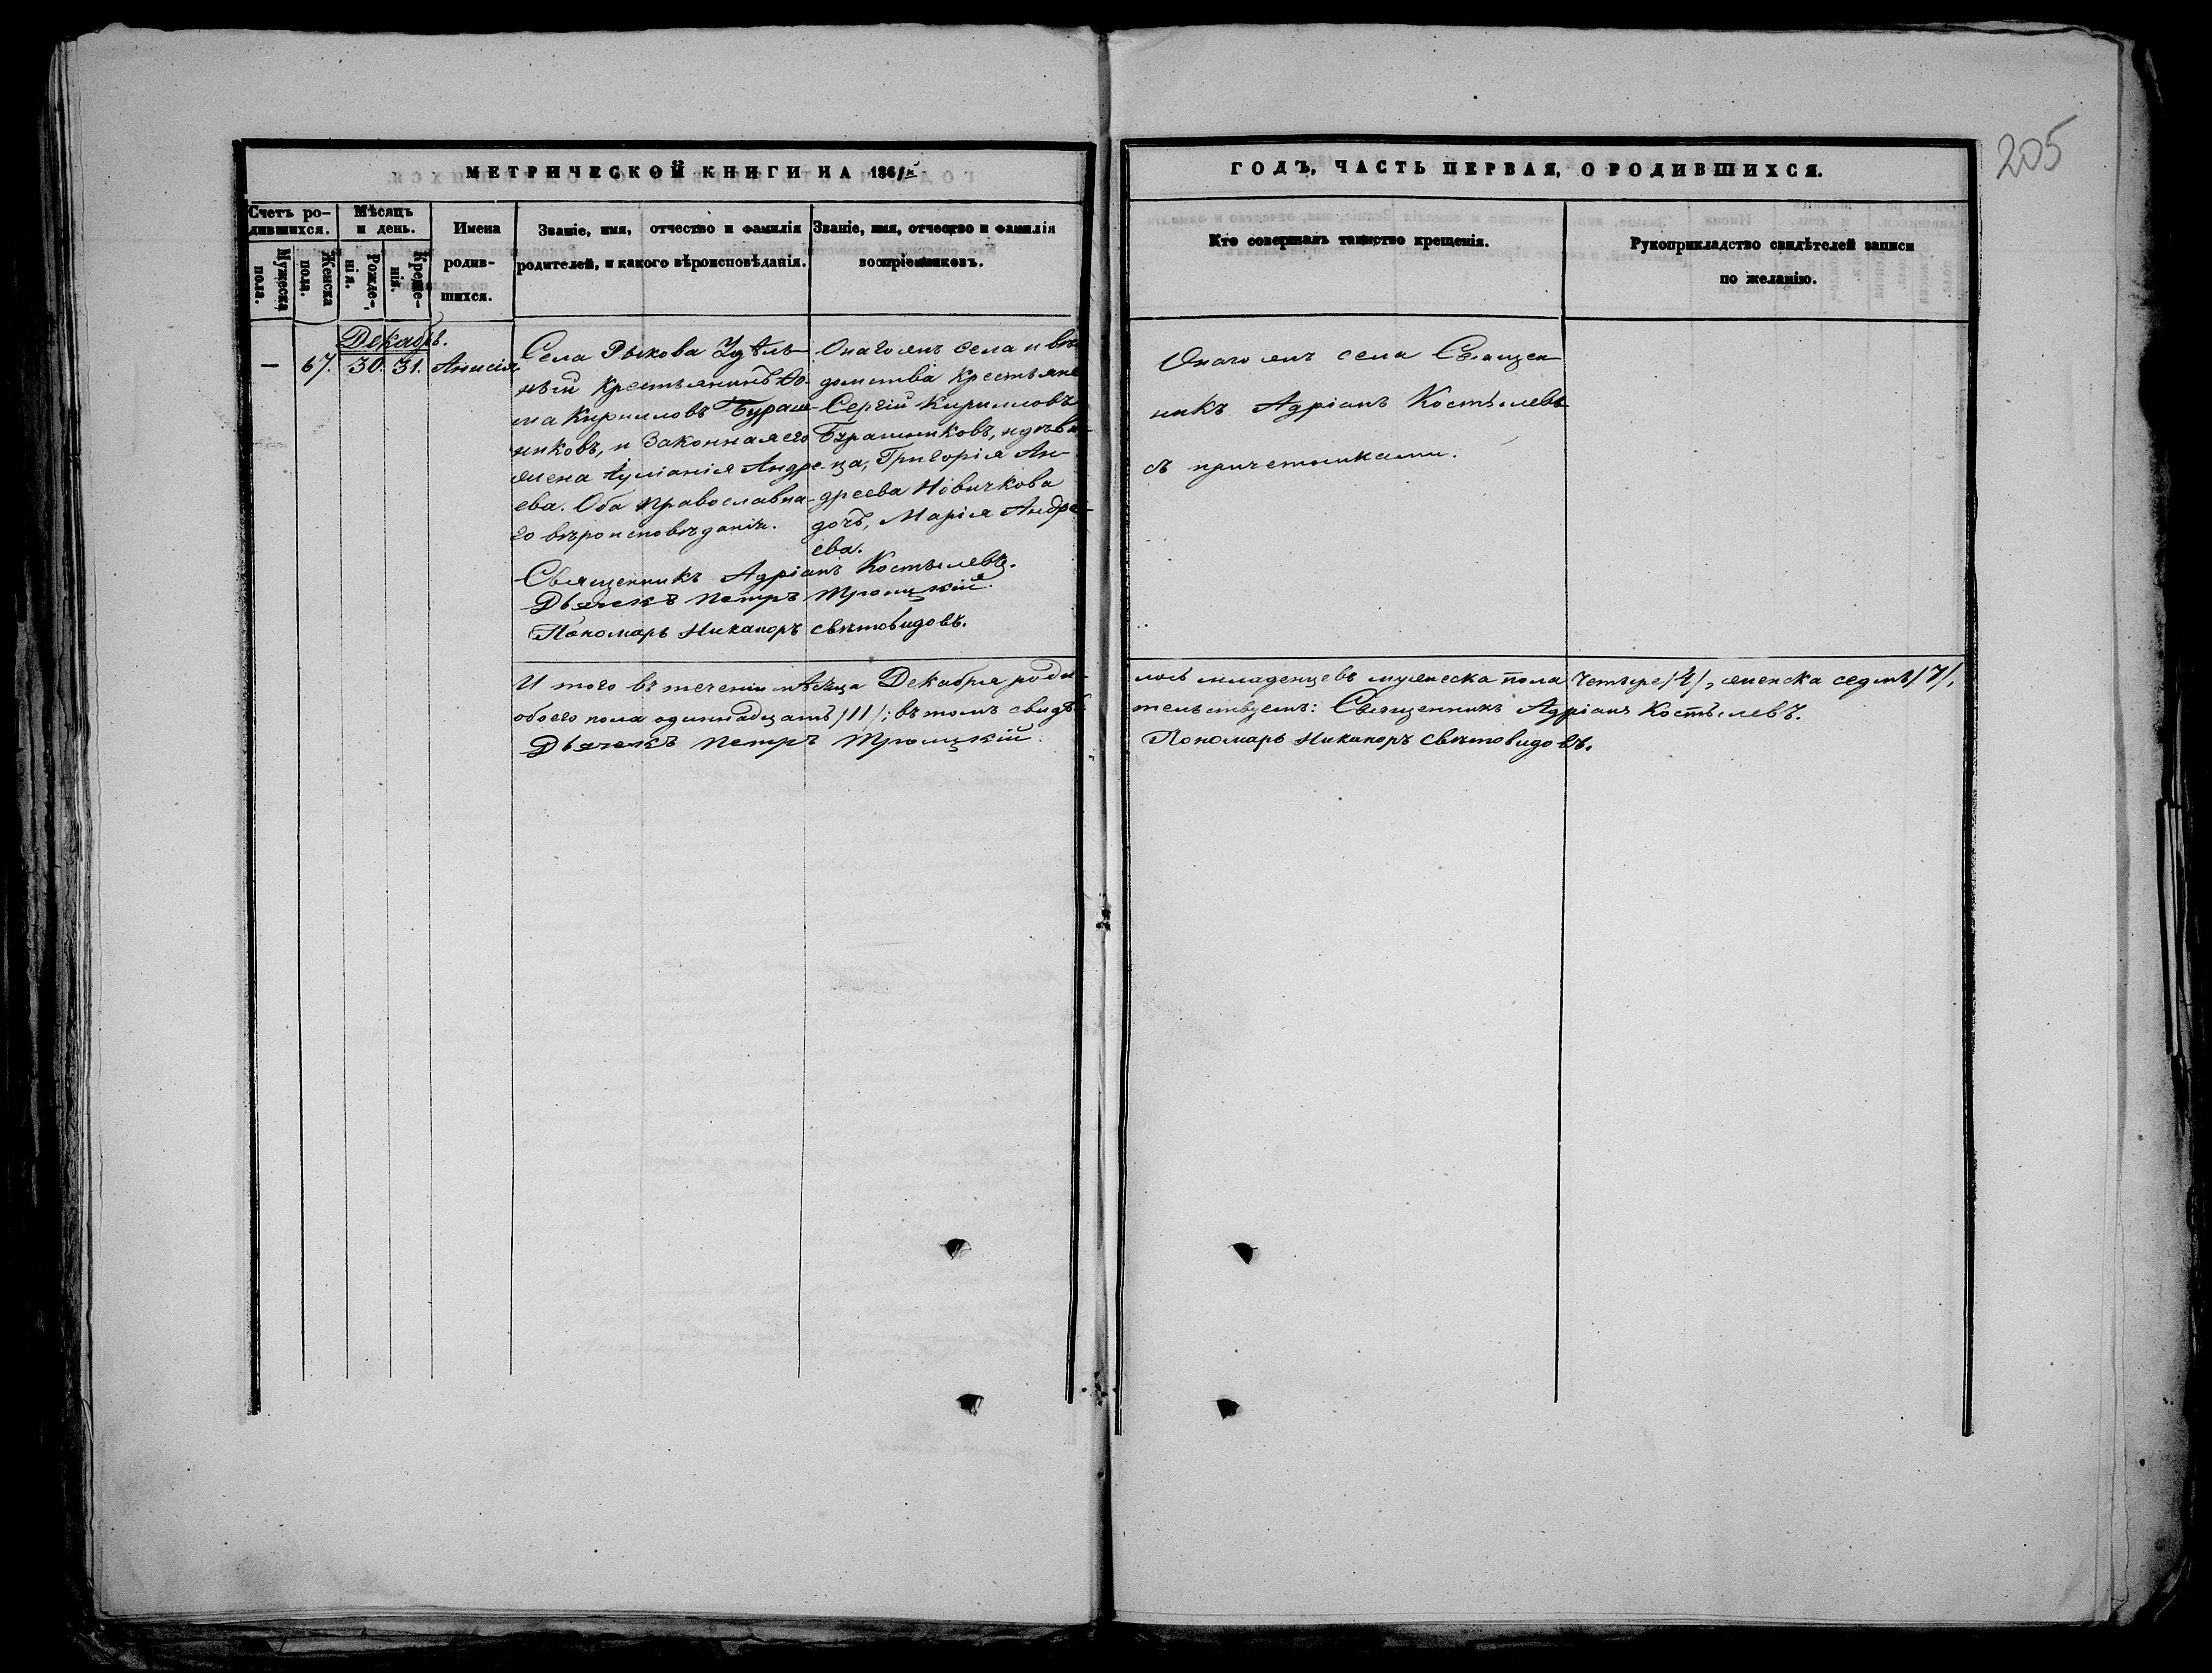 МЕТРИЧЕСКОЙ КНИГИ НА 1861й
ГОДЪ, ЧАСТЬ ПЕРВАЯ, О РОДИВШИХСЯ.
205
Счетъ ро-
дившихся.
Мужеска
пола.
Женска
пола.
Мѣсяцъ
и день.
Рожде-
нія.
Креще-
нія.
Имена
родив-
шихся.
Званіе, имя, отчество и фамилія
родителей, и какого вѣроисповѣданія.
Званіе, имя, отчество и фамилія
воспріемниковъ.
Кто совершалъ таинство крещенія.
Рукоприкладство свидѣтелей записи
по желанію.
Декабрь.
— 67. 30. 31. Анисія.
Села Рыкова Удѣль-
ный крестьянинъ Ѳо-
ма Кирилловъ Бураш-
никовъ, и законная его
жена Іуліанія Андре-
ева. Оба православна-
го вѣроисповѣданія.
Онагожъ села и вѣ-
домства крестьяне
Сергій Кирилловъ
Бурашниковъ, и дѣви-
ца, Григорія Ан-
дреева Новичкова
дочь, Марія Андре-
ева.
Онагожъ села Священ-
никъ Адріанъ Костылевъ
съ причетниками.
Священникъ Адріанъ Костылевъ.
Дьячекъ Петръ Троицкій.
Пономарь Никаноръ Свѣтовидовъ.
И того въ теченіи мѣсяца Декабря роди- лось младенцевъ мужеска пола четыре /4/, женска седмь /7/,
обоего пола одиннадцать /11/; въ томъ свидѣ- тельствуемъ: Священникъ Адріанъ Костылевъ.
Дьячекъ Петръ Троицкій. Пономарь Никаноръ Свѣтовидовъ.